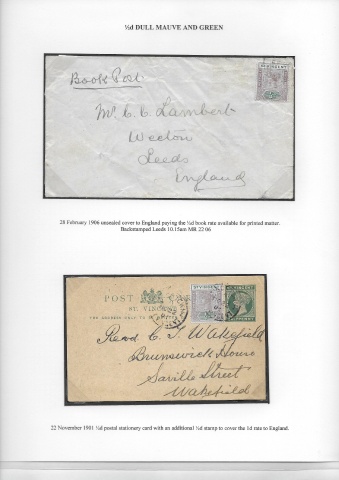 ½d DULL MAUVE AND GREEN
Book Post
Mr C. C. Lambert
Weeton
Leeds
England
28 February 1906 unsealed cover to England paying the ½d book rate available for printed matter.
Backstamped Leeds 10.15am MR 22 06
POST CARD
ST. VINCENT
THE ADDRESS ONLY TO BE
ST VINCENT
Revd C. T. Wakefield
Brunswick House
Saville Street
Wakefield
22 November 1901 ½d postal stationery card with an additional ½d stamp to cover the 1d rate to England.